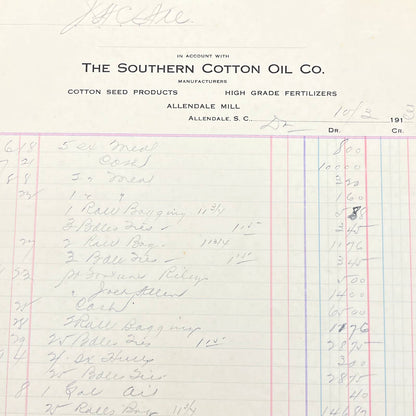 IN ACCOUNT WITH
THE SOUTHERN COTTON OIL CO.
MANUFACTURERS
COTTON SEED PRODUCTS HIGH GRADE FERTILIZERS
ALLENDALE MILL
ALLENDALE, S. C., Dr 10/3 1913
DR. CR.
6 18 5 sx Meal 800
7 21 Cash 10000
8 8 Meal
1 " " 160
1 Roll Bagging 11 3/4 588
3 Bales Ties 1 15 345
2 Roll Bag. 11 3/4 1176
3 Bales Ties 1 15 345
Riley 500
" 1400
25 Cash 6500
28 2 Roll Bagging 1176
29 25 Bales Ties 1 15 2875
4 sx Hulls 300
25 Bales Ties 2875
8 1 Gal Oil 40
25 Rolls Bag 11 3/4